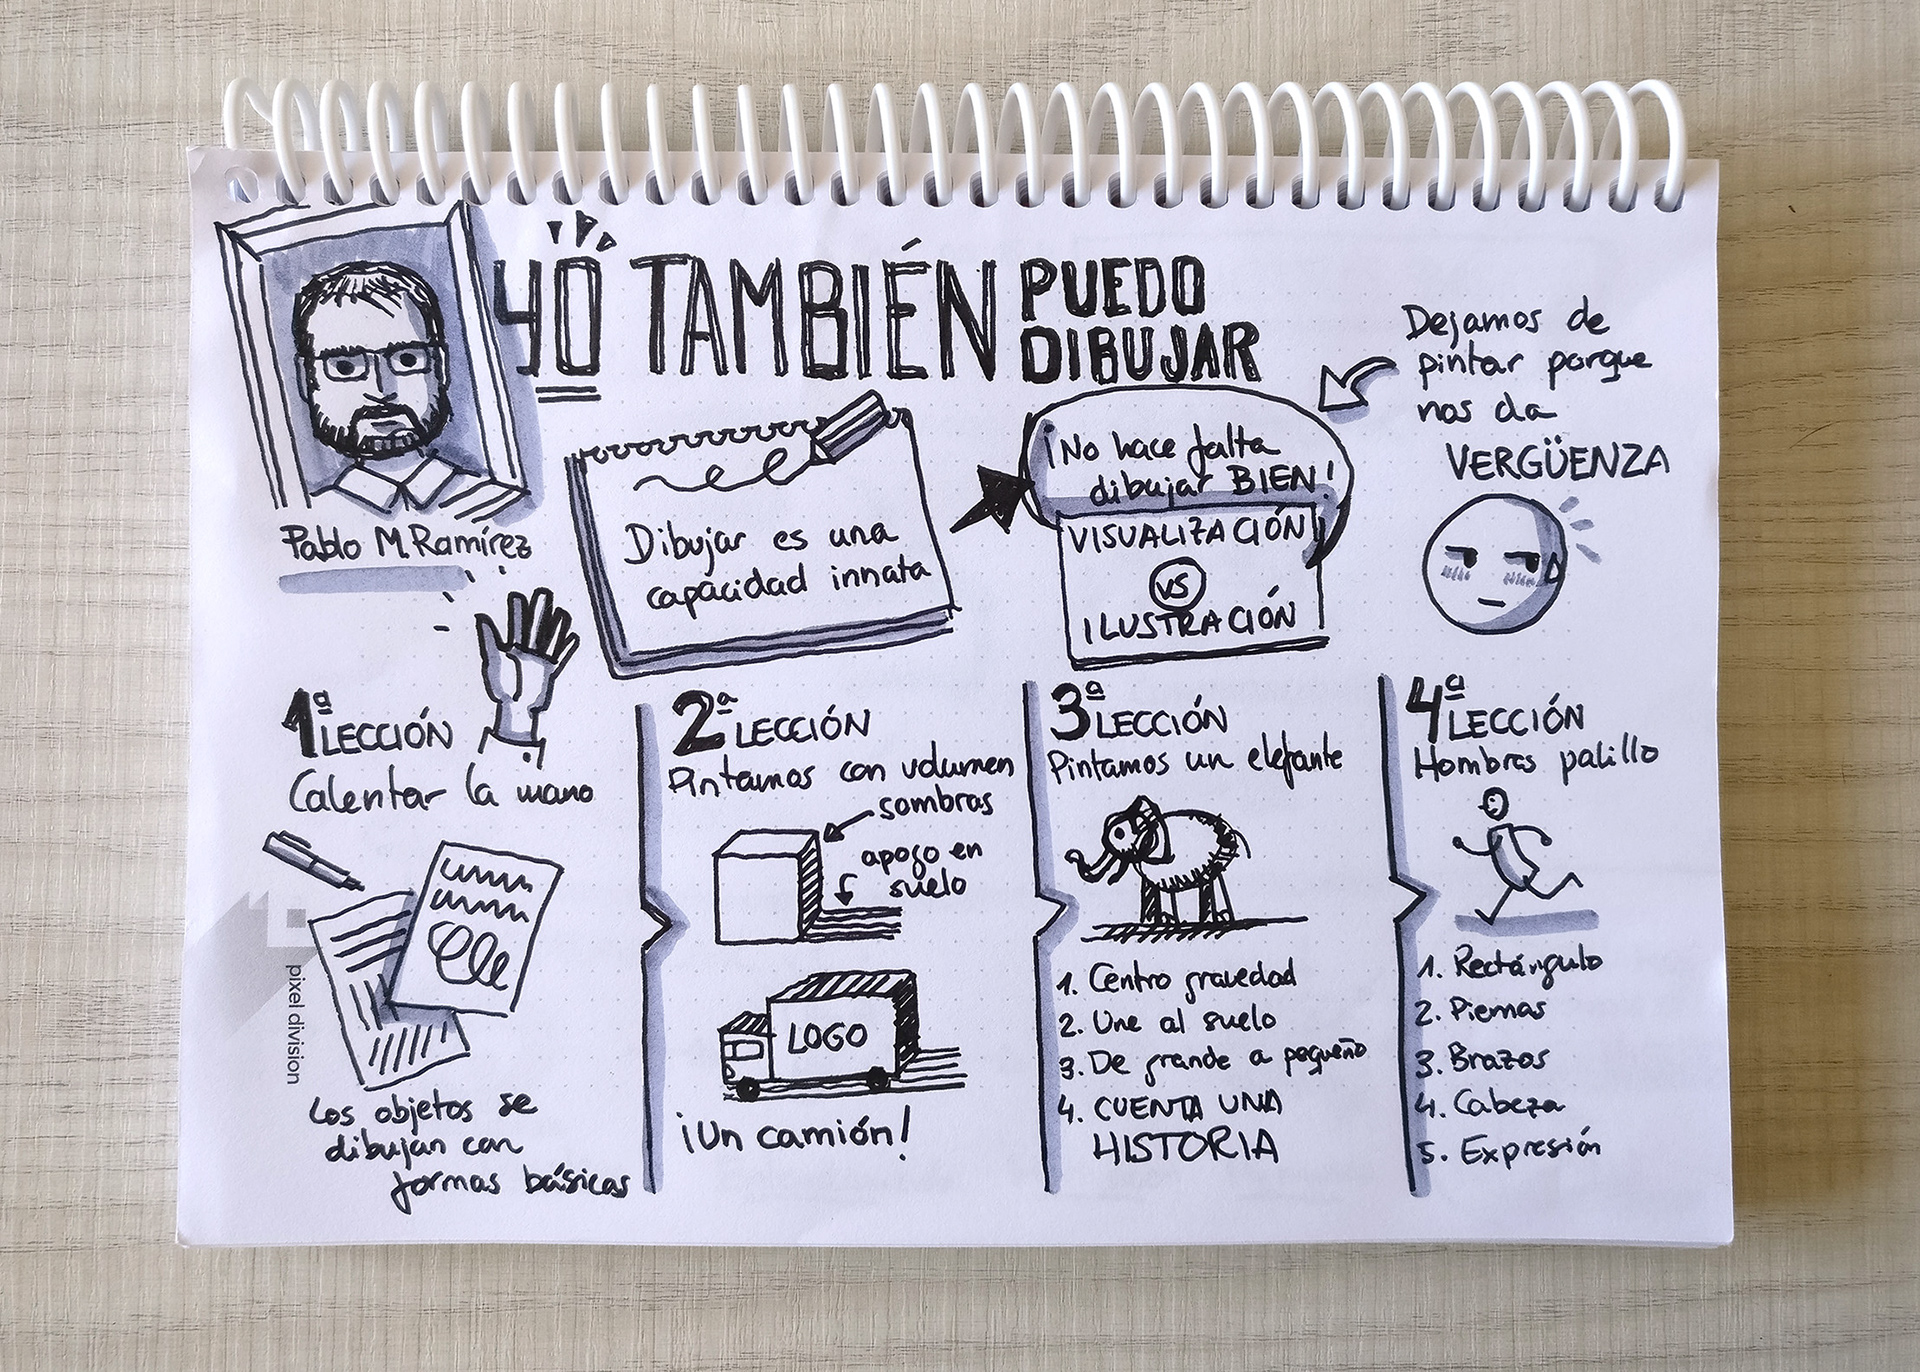 YO TAMBIÉN PUEDO
DIBUJAR
Pablo M. Ramírez
Dibujar es una
capacidad innata
¡No hace falta
dibujar BIEN!
VISUALIZACIÓN
VS
ILUSTRACIÓN
Dejamos de
pintar porque
nos da
VERGÜENZA
1ª LECCIÓN
Calentar la mano
Los objetos se
dibujan con
formas básicas
pixel division
2ª LECCIÓN
Pintamos con volumen
sombras
apoyo en
suelo
LOGO
¡Un camión!
3ª LECCIÓN
Pintamos un elefante
1. Centro gravedad
2. Une al suelo
3. De grande a pequeño
4. CUENTA UNA
HISTORIA
4ª LECCIÓN
Hombres palillo
1. Rectángulo
2. Piernas
3. Brazos
4. Cabeza
5. Expresión